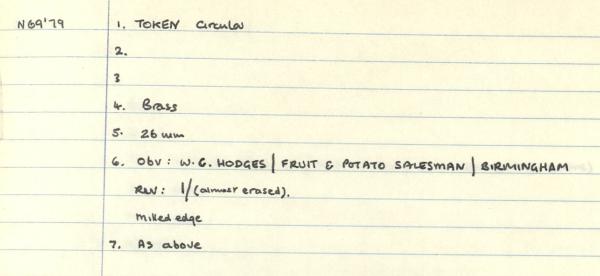 N69'79 1. TOKEN Circular
2.
3
4. Brass
5. 26 mm
6. Obv: W.G. HODGES | FRUIT & POTATO SALESMAN | BIRMINGHAM
Rev: 1/ (almost erased).
Milled edge
7. As above